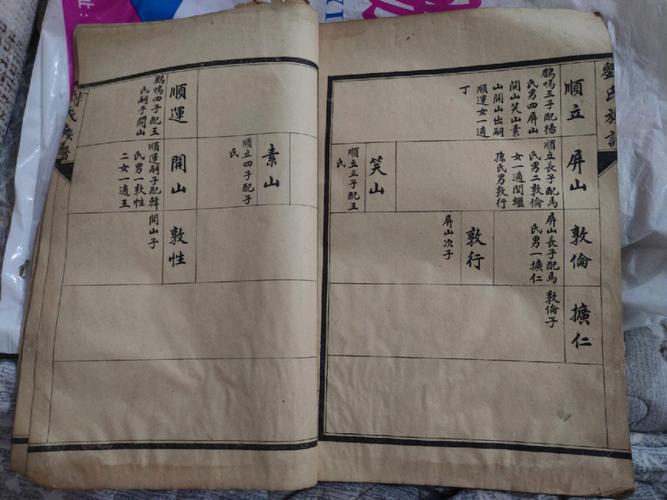 劉氏族譜
順立
鶴鳴三子配楊
氏男四屏山
開山笑山素
山開山出嗣
順運女一適
丁
屏山
順立長子配馬
氏男二敦倫
女一適閔繼
孫氏男敦行
笑山
順立三子配王
氏
敦倫
屏山長子配馬
氏男一擴仁
敦行
屏山次子
擴仁
敦倫子
素山
順立四子配于
氏
順運
鶴鳴四子配王
氏嗣子開山
開山
順運嗣子配韓
氏男一敦性
二女一適王
敦性
開山子
氏族譜